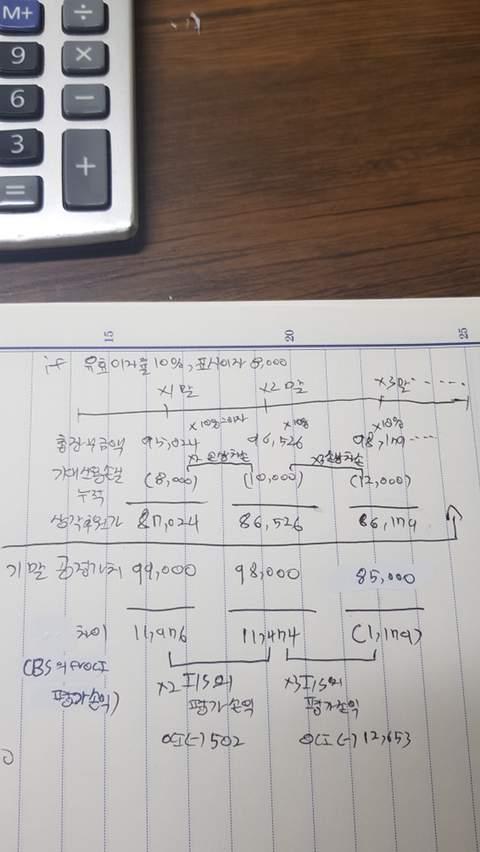 M+ ÷
9 ×
6 −
3 +
=
15 20 25
if 유효이자율 10%, 표시이자 8,000
X1말 X2말 X3말 ······
X10% 이자 X10% X10%
총장부금액 95,024 96,526 98,179 ····
X2 손상차손 X3손상차손
기대신용손실 (8,000) (10,000) (12,000)
누적
상각후원가 87,024 86,526 86,179
기말 공정가치 99,000 98,000 85,000
차이 11,976 11,474 (1,179)
(BS의 FVOCI X2 I/S의 X3 I/S의
평가손익) 평가손익 평가손익
OCI (-) 502 OCI (-) 12,653